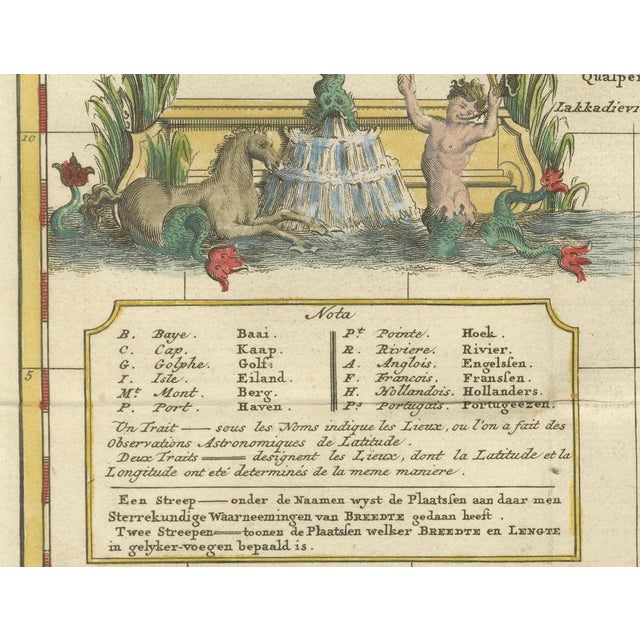 Qualpen
Lakkadievi
10
Nota
B. Baye. Baai. Pt. Pointe. Hoek.
C. Cap. Kaap. R. Riviere. Rivier.
G. Golphe. Golf. A. Anglois. Engelssen.
5
I. Isle. Eiland. F. Francois. Franssen.
Mt. Mont. Berg. H. Hollandois. Hollanders.
P. Port. Haven. Ps. Portugais. Portugeezen.
Un Trait — sous les Noms indique les Lieux, ou l'on a fait des
Observations Astronomiques de Latitude.
Deux Traits == designent les Lieux, dont la Latitude et la
Longitude ont eté determinés de la meme maniere.
Een Streep — onder de Naamen wyst de Plaatssen aan daar men
Sterrekundige Waarneemingen van BREEDTE gedaan heeft.
Twee Streepen == toonen de Plaatssen welker BREEDTE en LENGTE
in gelyker-voegen bepaald is.